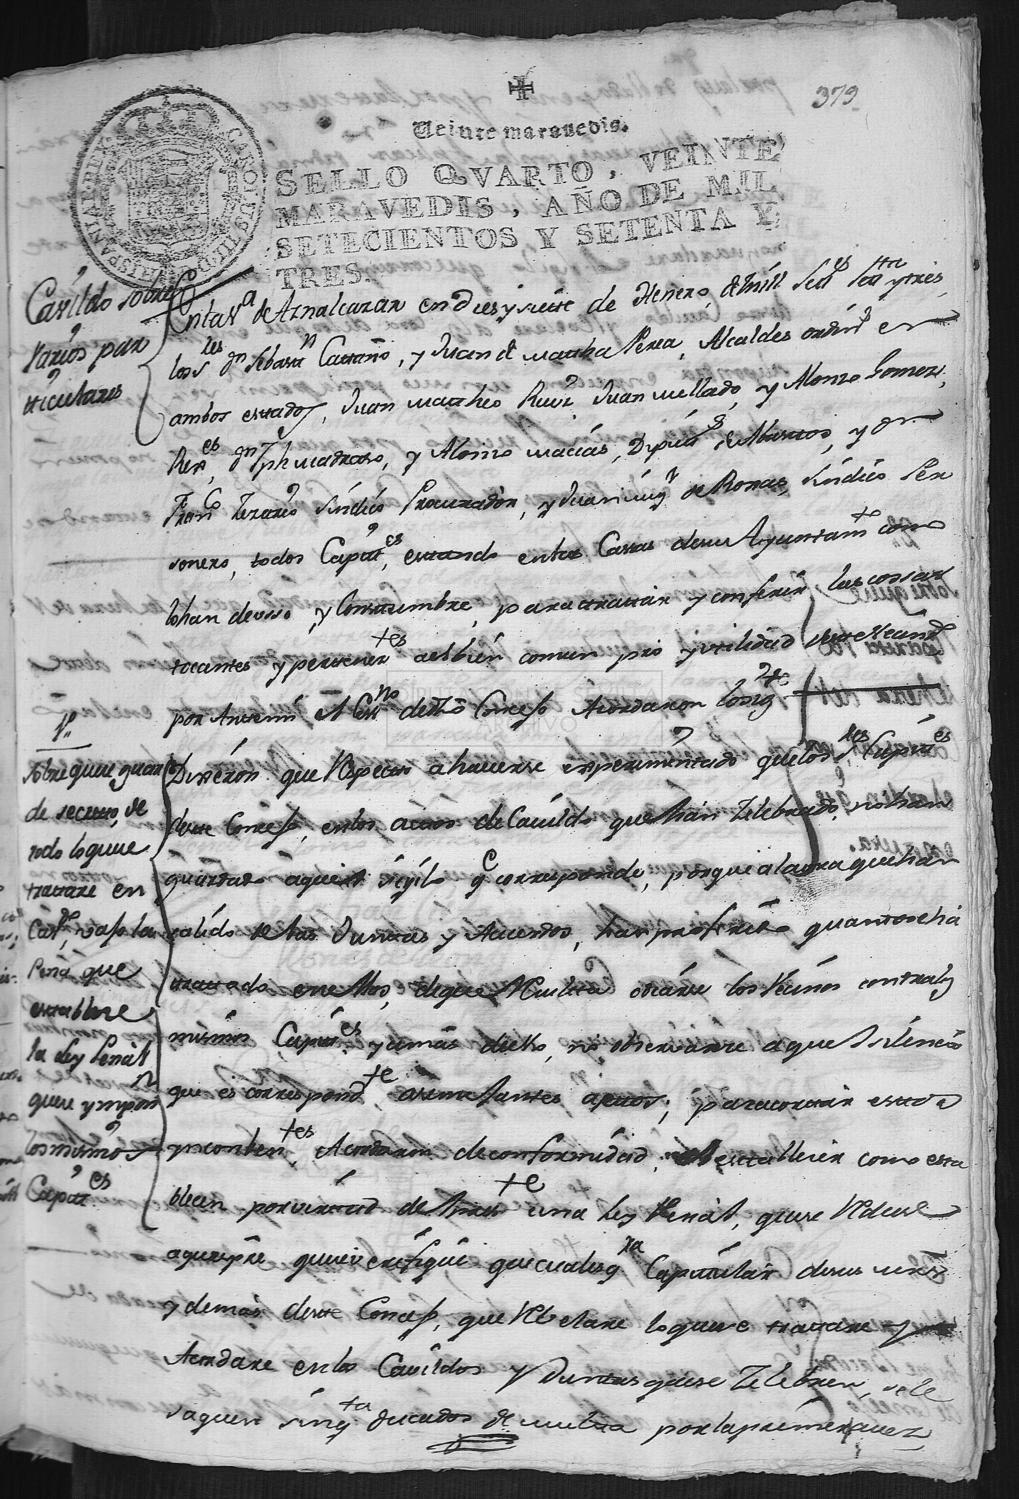 379
Veinte maravedis.
SELLO QVARTO, VEINTE
MARAVEDIS, AÑO DE MIL
SETECIENTOS Y SETENTA Y
TRES.
CAROLUS III D G HISPANIAR REX
Cavildo sobre
varios par
ticulares
En la Va de Aznalcazar en dies y siete de Henero, de mill setts setta y tres
los Sres Dn Sebastn Castaño, y Juan de Mancha Perea, Alcaldes ordins en
ambos estados, Juan Matheo Ruiz, Juan Mellado, y Alonso Gomes,
Rexes, Dn Jph Madroso, y Alonso Macias, Diputs de Abastos, y Dn
Franco sindico Procurador, y Juan de Rosas, sindico Per
sonero, todos Capites, estando en las Casas de su Ayuntamto como
lo han de usso y Constumbre, para tratar y conferir las cossas
tocantes y pertenentes al bien comun pro y utilidad
por Ante mi el Essno de dho Consejo Acordaron lo sigte
1º
sobre que se guar
de secreto, de
todo lo que se
tratare en
Cavdo, vajo la
Pena que
establese
la ley Penal
que se ympon
los mismos
Capites
Dixeron que respecto a haverse experimentado que los Sres Capitres
deste Consejo, en los actos de Cavildo que se han Zelebrado, no han
guardado aquel sigilo q corresponde, porque a la ora que han
salido de las Juntas y Acuerdos, han proferido quanto se ha
tratado en ellos, de que resulta odiarse los Vesinos contra los
mismos Capites y a mas de esto, no observarse aquel silencio
que es correspondte a semejantes actos; para cortar este
yncontente, Acordaron de conformidad, el establecer como esta
blecen por virtud de una ley Penal, que se reduce
a que sipre que se verifique que cualesqra Capitular de sus mrds
y demas deste Consejo, que rebelare lo que se tratare y
Acordare en los Cavildos y Juntas que se Zelebren, se le
saquen sinqta ducados de multa por la primera vez